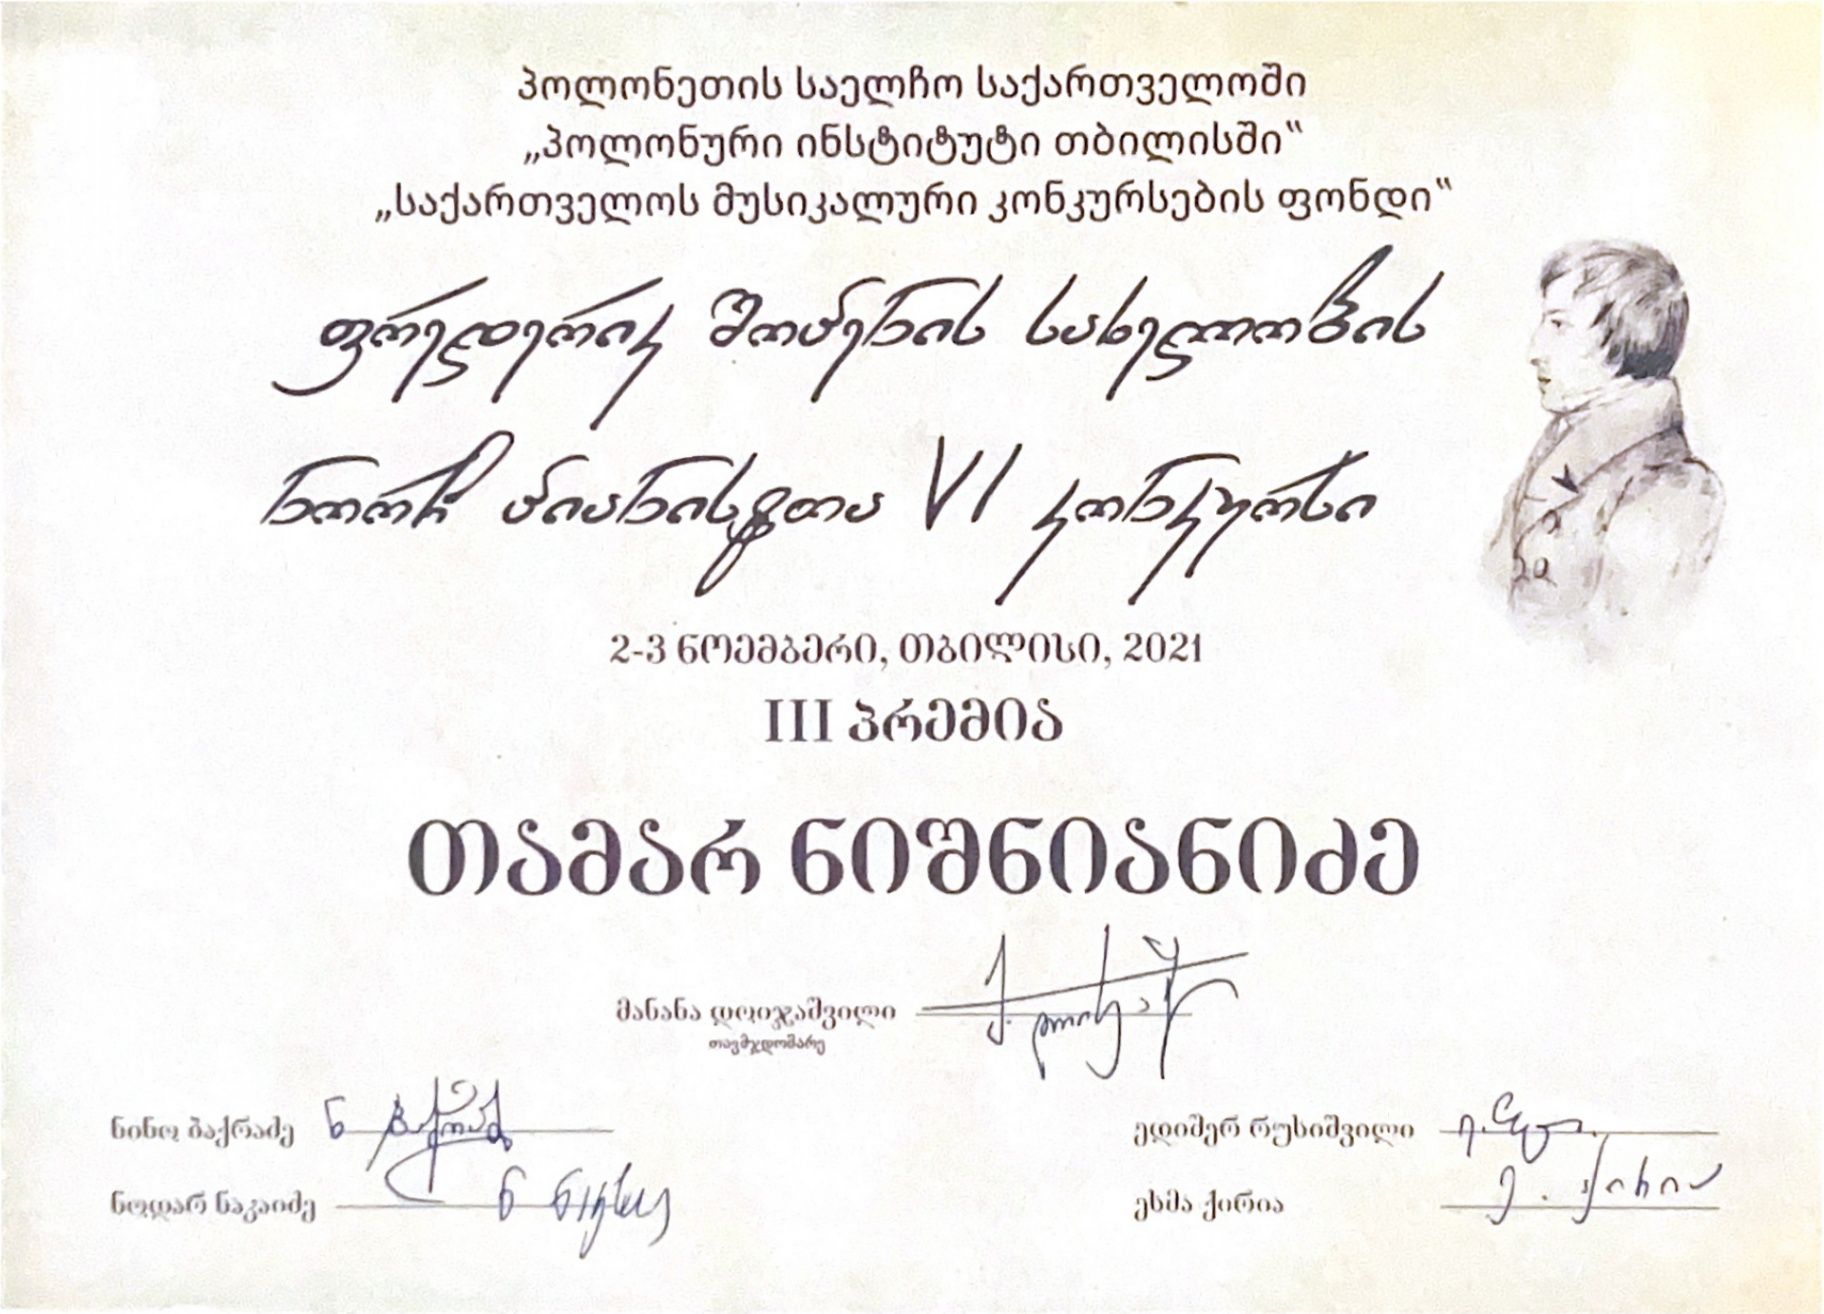 პოლონეთის საელჩო საქართველოში
„პოლონური ინსტიტუტი თბილისში“
„საქართველოს მუსიკალური კონკურსების ფონდი“
ფრედერიკ შოპენის სახელობის
ნორჩ პიანისტთა VI კონკურსი
2-3 ნოემბერი, თბილისი, 2021
III პრემია
თამარ ნიშნიანიძე
მანანა დოიჯაშვილი
თავმჯდომარე
ნინო ბაქრაძე ედიშერ რუსიშვილი
ნოდარ ნაკაიძე ესმა ქირია